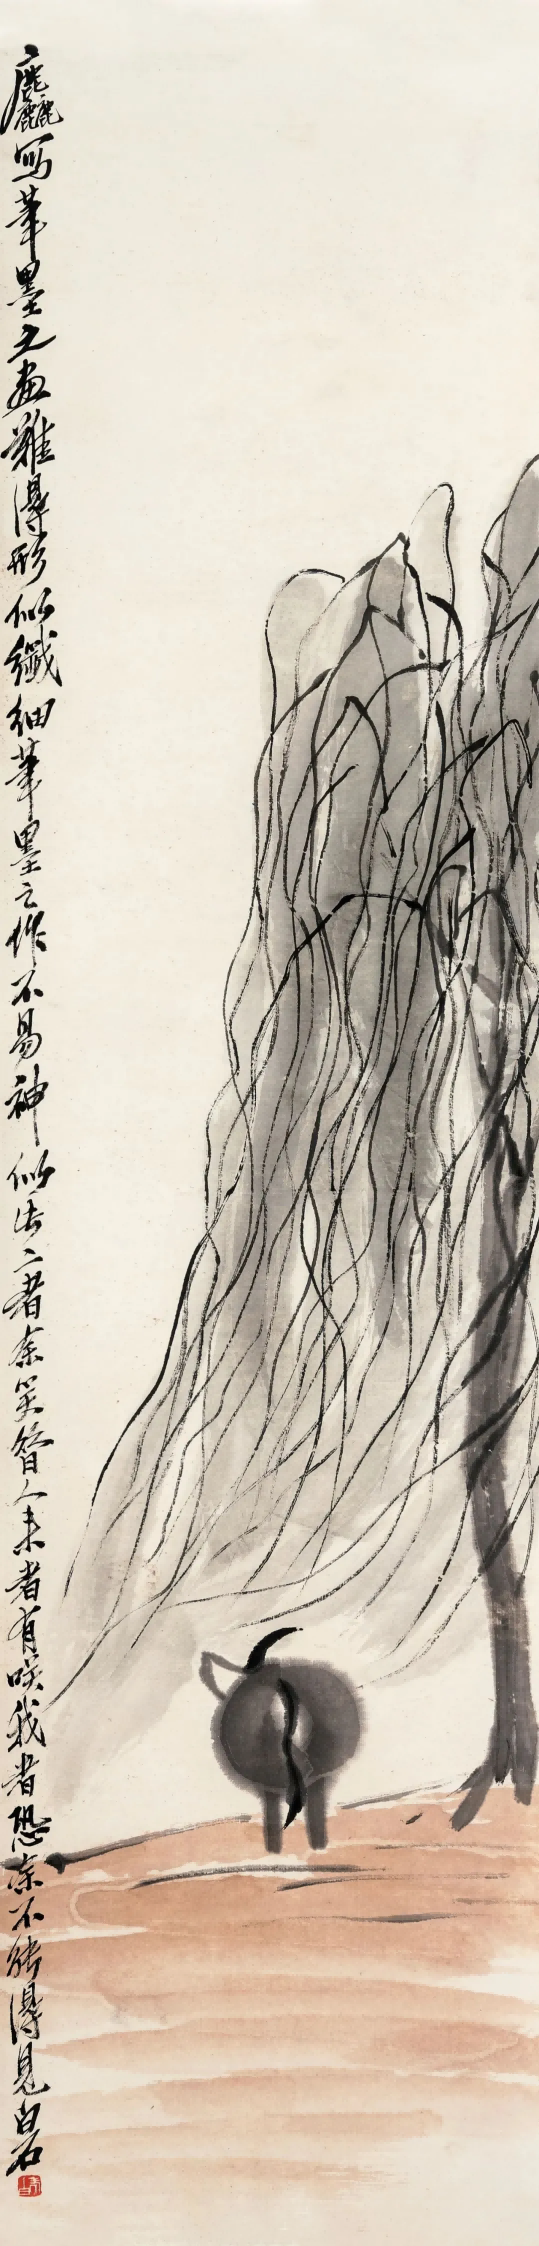 麤寫筆墨之畫難得形似纖細筆墨之作不易神似此二者余笑昔人来者有咲我者恐余不能得見白石